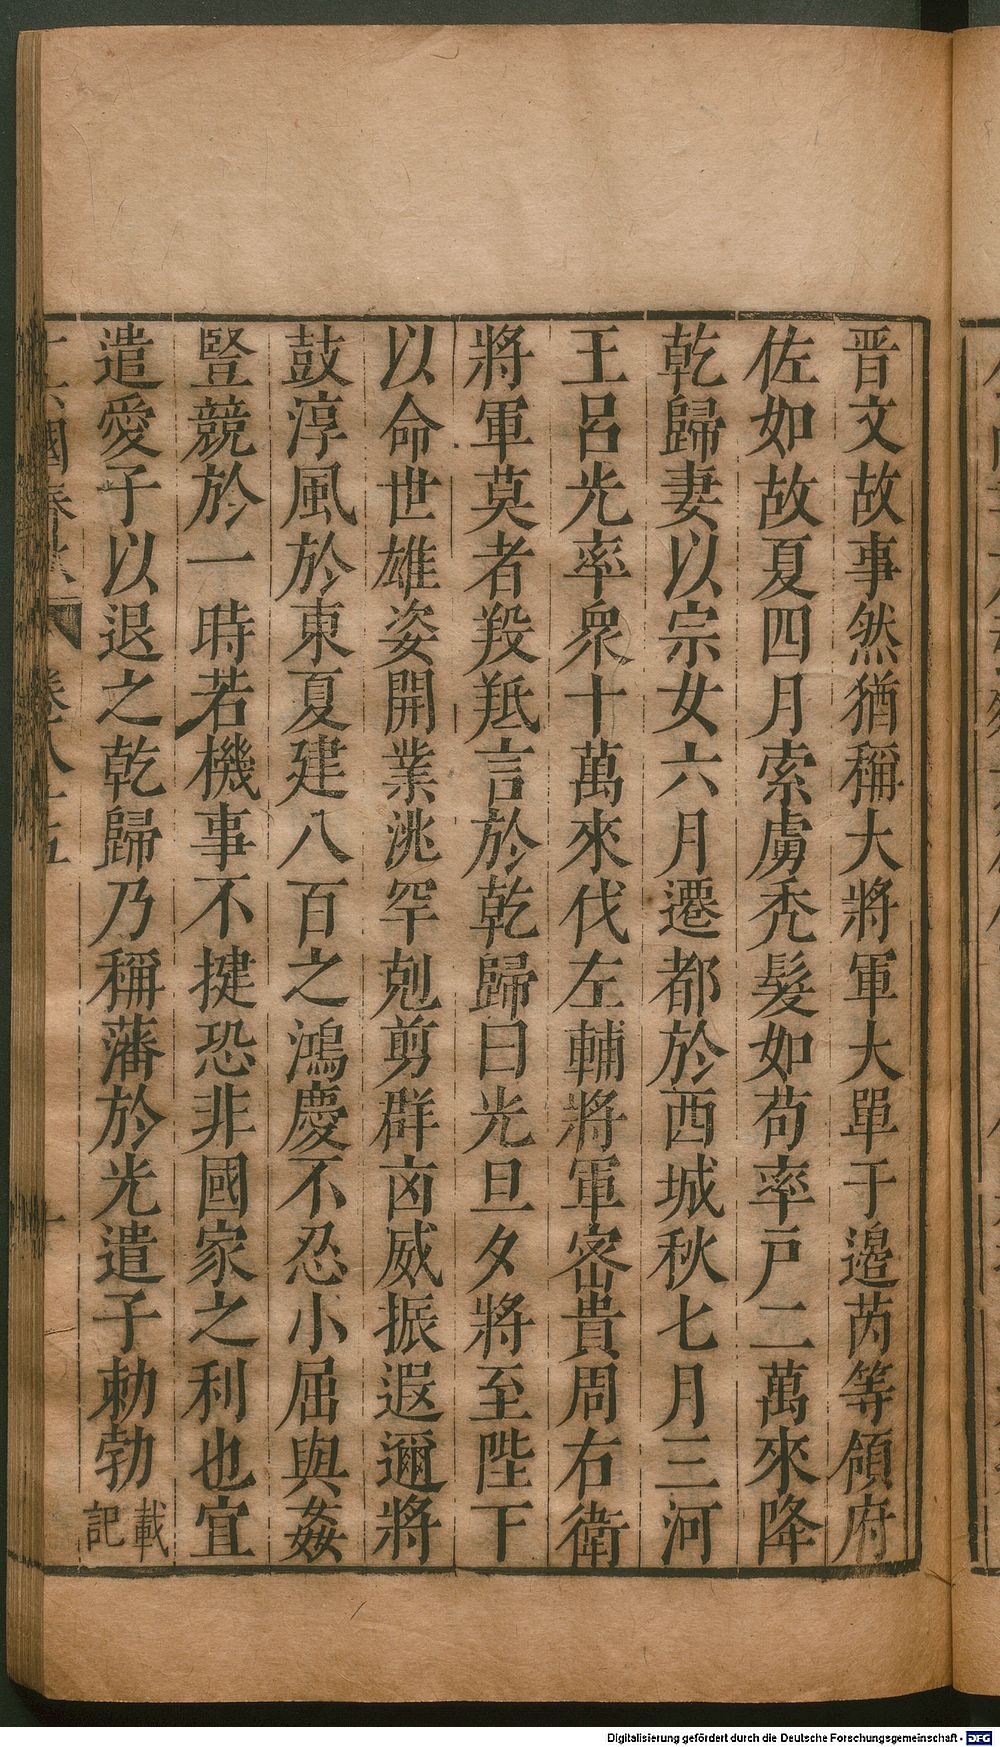 晋文故事然猶稱大將軍大單于邉芮等領府
佐如故夏四月索虜禿髮如苟率戸二萬來降
乾歸妻以宗女六月遷都於西城秋七月三河
王呂光率衆十萬來伐左輔將軍宻貴周右衛
將軍莫者羖羝言於乾歸曰光旦夕將至陛下
以命世雄姿開業洮罕剋剪群凶威振遐邇將
鼓淳風於東夏建八百之鴻慶不忍小屈與姦
豎競於一時若機事不捷恐非國家之利也宜
遣愛子以退之乾歸乃稱藩於光遣子勅勃載記
十六國春秋 卷八十五 十
Digitalisierung gefördert durch die Deutsche Forschungsgemeinschaft - DFG